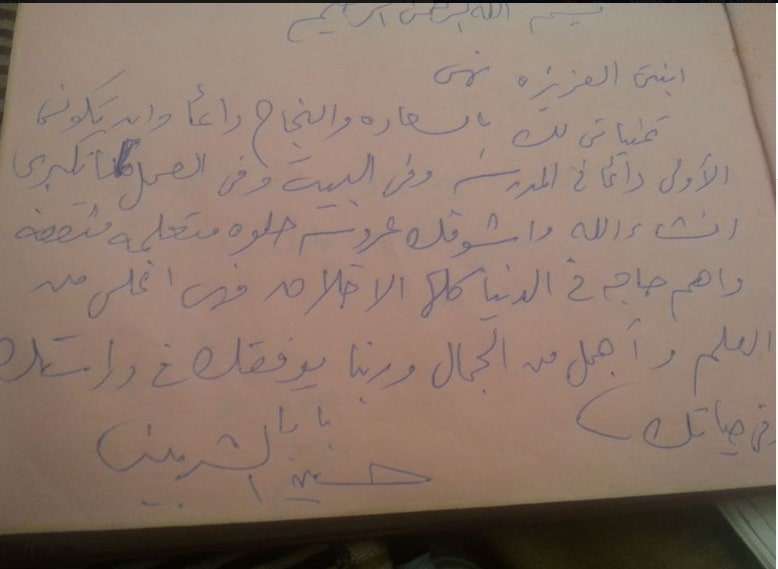 بسم الله الرحمن الرحيم
ابنتى العزيزه نهى
تمنياتى لك بالسعاده والنجاح دائما وان تكونى
الأولى دائما فى المدرسه وفى البيت وفى العمل لما تكبرى
انشاء الله واشوفك عروسه حلوه متعلمه مثقفه
واهم حاجه فى الدنيا كلها الاخلاق فهى اغلى من
العلم وأجمل من الجمال وربنا يوفقك فى دراستك
وفى حياتك
بابا
حسين الشربينى